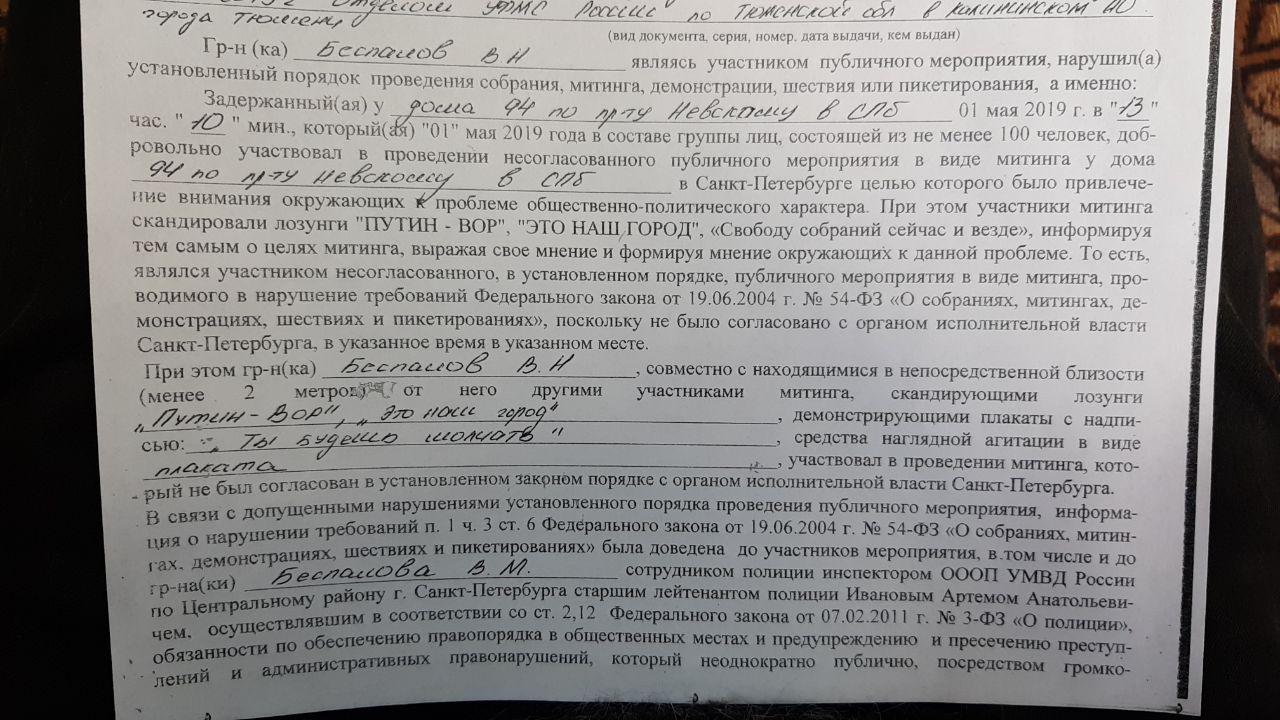 Отделом УФМС России по Тюменской обл в Калининском АО
города Тюмени
(вид документа, серия, номер, дата выдачи, кем выдан)
Гр-н (ка) Беспалов В.Н являясь участником публичного мероприятия, нарушил(а)
установленный порядок проведения собрания, митинга, демонстрации, шествия или пикетирования, а именно:
Задержанный(ая) у дома 94 по пр-ту Невскому в СПб 01 мая 2019 г. в "13"
час. "10" мин., который(ая) "01" мая 2019 года в составе группы лиц, состоящей из не менее 100 человек, доб-
ровольно участвовал в проведении несогласованного публичного мероприятия в виде митинга у дома
94 по пр-ту Невскому в СПб в Санкт-Петербурге целью которого было привлече-
ние внимания окружающих к проблеме общественно-политического характера. При этом участники митинга
скандировали лозунги "ПУТИН - ВОР", "ЭТО НАШ ГОРОД", «Свободу собраний сейчас и везде», информируя
тем самым о целях митинга, выражая свое мнение и формируя мнение окружающих к данной проблеме. То есть,
являлся участником несогласованного, в установленном порядке, публичного мероприятия в виде митинга, про-
водимого в нарушение требований Федерального закона от 19.06.2004 г. № 54-ФЗ «О собраниях, митингах, де-
монстрациях, шествиях и пикетированиях», поскольку не было согласовано с органом исполнительной власти
Санкт-Петербурга, в указанное время в указанном месте.
При этом гр-н(ка) Беспалов В.Н, совместно с находящимися в непосредственной близости
(менее 2 метров от него другими участниками митинга, скандирующими лозунги
„Путин-Вор", „Это наш город", демонстрирующими плакаты с надпи-
сью: „Ты будешь молчать", средства наглядной агитации в виде
плаката, участвовал в проведении митинга, кото-
рый не был согласован в установленном законом порядке с органом исполнительной власти Санкт-Петербурга.
В связи с допущенными нарушениями установленного порядка проведения публичного мероприятия, информа-
ция о нарушении требований п. 1 ч. 3 ст. 6 Федерального закона от 19.06.2004 г. № 54-ФЗ «О собраниях, митин-
гах, демонстрациях, шествиях и пикетированиях» была доведена до участников мероприятия, в том числе и до
гр-на(ки) Беспалова В.М. сотрудником полиции инспектором ОООП УМВД России
по Центральному району г. Санкт-Петербурга старшим лейтенантом полиции Ивановым Артемом Анатольеви-
чем, осуществлявшим в соответствии со ст. 2,12 Федерального закона от 07.02.2011 г. № 3-ФЗ «О полиции»,
обязанности по обеспечению правопорядка в общественных местах и предупреждению и пресечению преступ-
лений и административных правонарушений, который неоднократно публично, посредством громко-